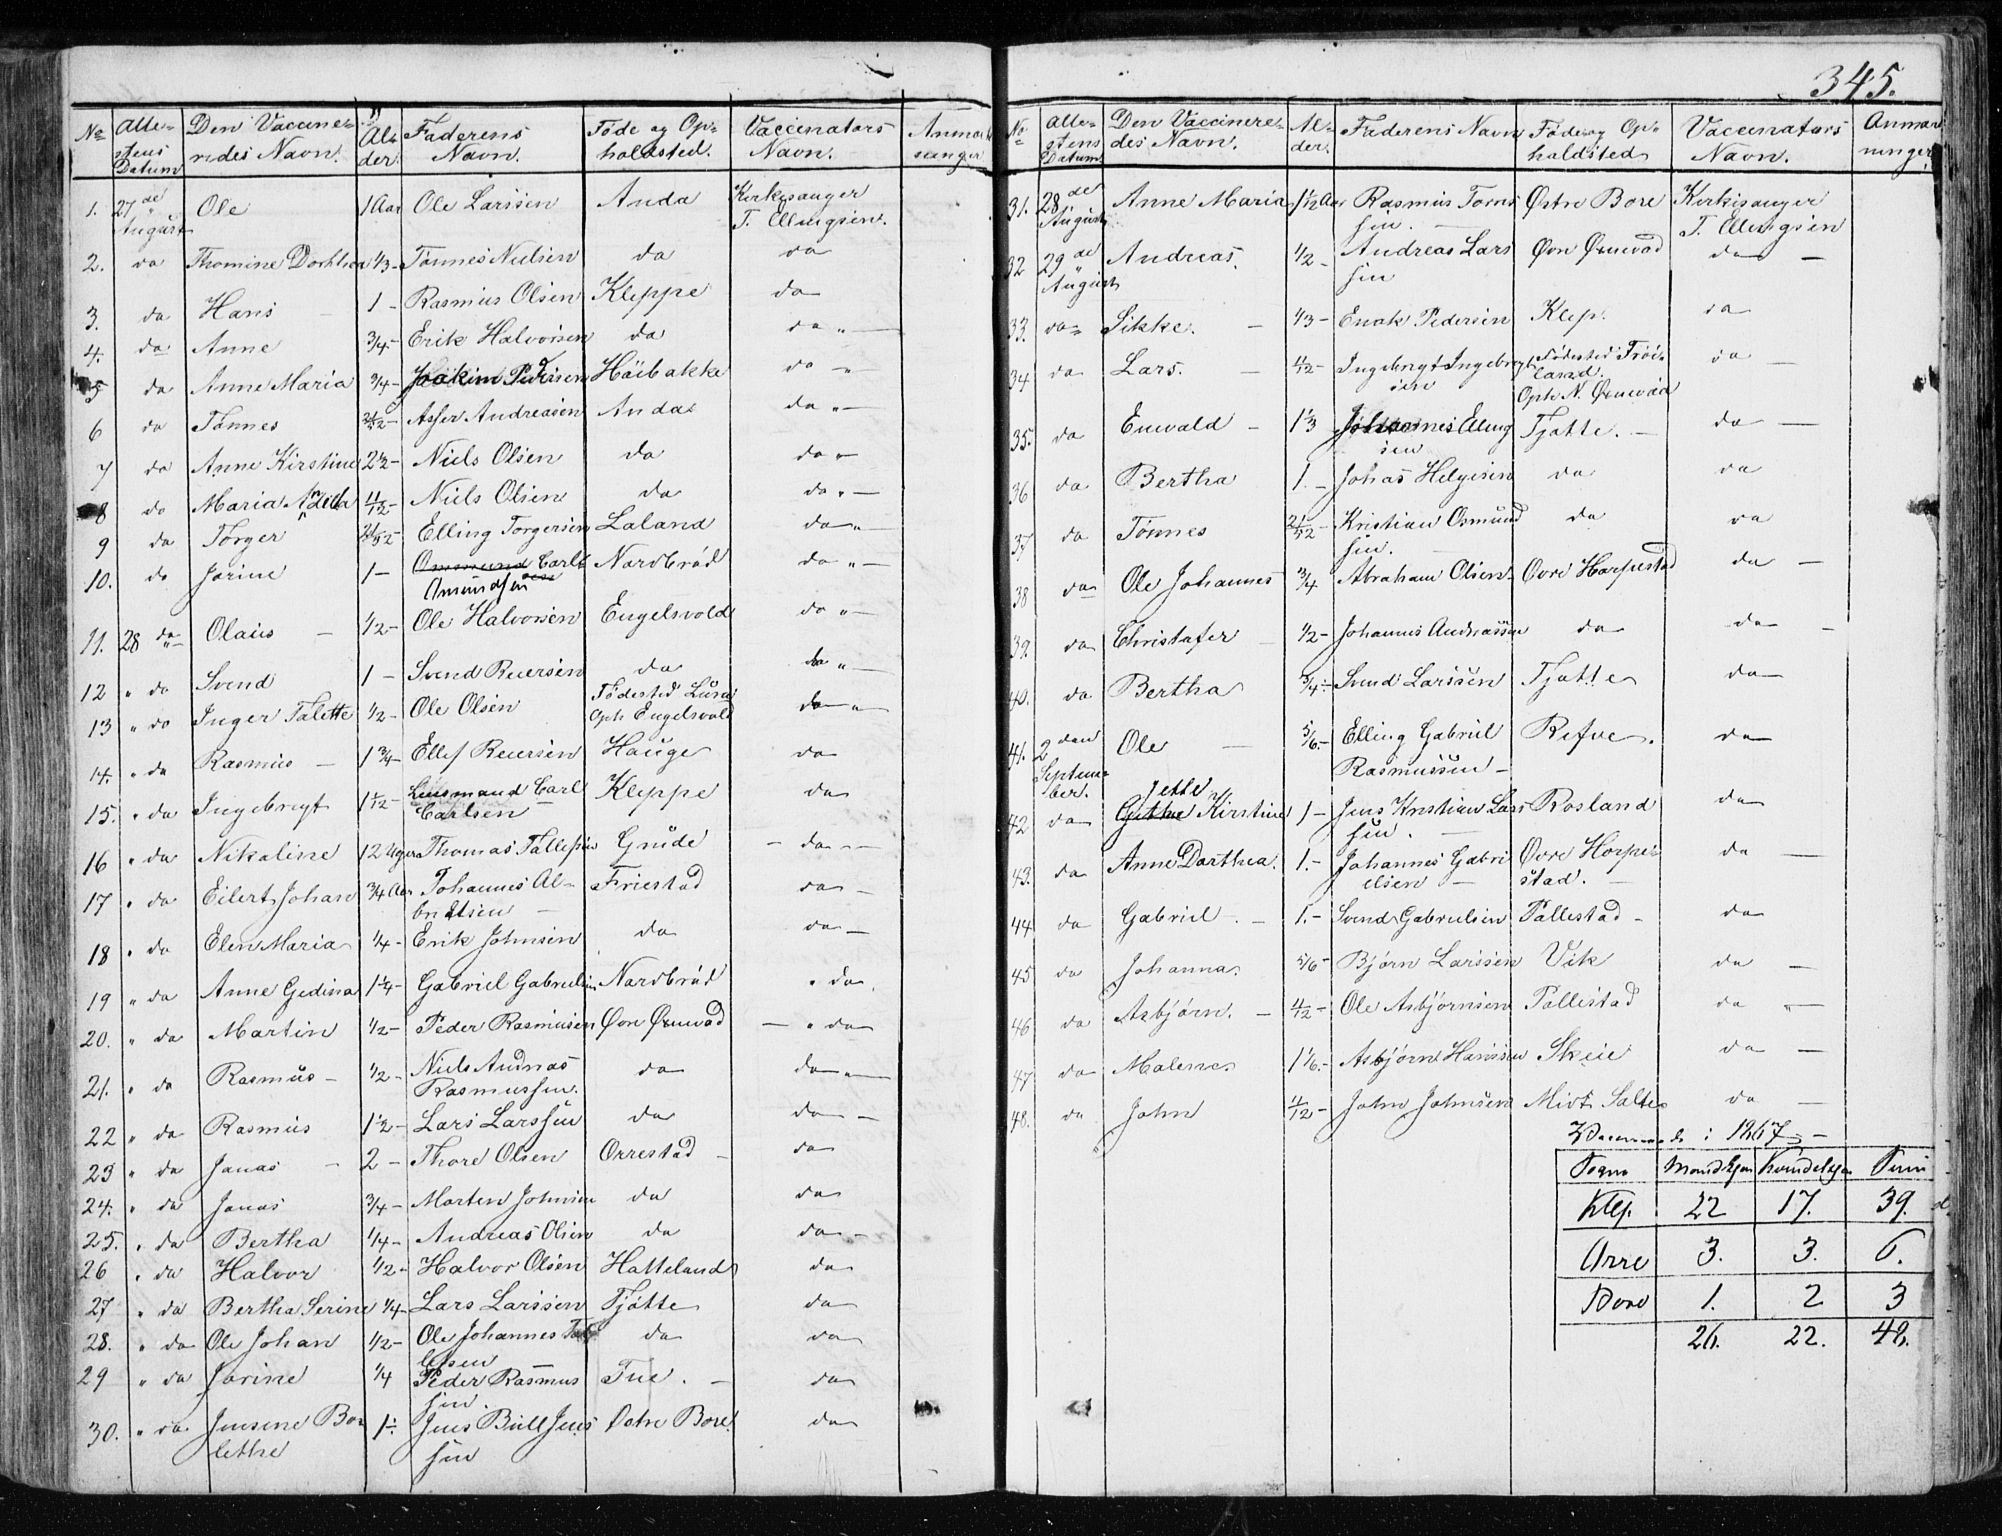 345.
No Atte- Den Vaccine- Al- Faderens Føde og Op- Vaccinators Anmærk
stens ridesNavn. der. Navn. holdsted. Navn.
Datum
1. 27de August Ole 1 Aar Ole Larssen Anda Kirkesanger
T. Ellingsen.
2. do Thomine Dorthea 1/3- Tønnes Nielsen do do
3. do Hans 1- Rasmus Olsen Kleppe do
4. do Anne 3/4- Erik Halvorsen do do " -
5 do Anne Maria 3/4- Joakim Pedersen Höibakke do "
6 do Tønnes Asser Andreasen Anda do " -
7 do Anne Kirstine 2 1/2- Niels Olsen do do "
8 do Maria 4/12- Niels Olsen do do " -
9 do Torger Elling Torgersen Laland do "
10. do Jorine 1- Carl Nordbrød do " -
Amundsen
11. 28 do Olaus - 1/2- Ole Halvorsen Engelsvold do " -
12 " do Svend 1- Svend Reiersen do do " -
13 " do Inger Talette 1/2- Ole Olsen Fødested Lura do " -
Oph Engelsvold
14. " do Rasmus - 1 3/4- Ellef Reiersen Hauge do
15. " do Ingebregt 1 1/12- Lensmand Carl Kleppe do
Carlsen
16 " do Nikoline 12 Uger Thomas Tollefsen Grude - do -
17 " do Eilert Johan 3/4 Aar Johannes Al- Friestad do -
brektsen -
18 " do Elen Maria 1/4- Erik Johnsen do do -
19 " do Anne Gedina 1 1/4- Gabriel Gabrielsen Nordbrød " do
20. " do Martin 1/2- Peder Rasmusen Øvr Ørnevad - " do
21. " do Rasmus - 1/2- Niels Andreas do do
Rasmussen.
22 " do Rasmus 1 1/2- Lars Larssen do do -
23 " do Jonas - 2- Thore Olsen Orrestad - do
24. " do Jonas 3/4- Morten Johnsen do do
25. " do Bertha 1/4- Andreas Olsen do do -
26 " do Halvor 1/2- Halvor Olsen Hatteland do
27 " do Bertha Serine 1/4- Lars Larssen Tjøtte do
28. " do Ole Johan 1/2- Ole Johannes Tol do do
lefsen
29 " do Jorine 1/4 Peder Rasmus Tue. - do
sen.
30. " do Jensine Bo- 1- Jens Bull Jens Østre Bore do
lethe sen
No Atte- Den Vaccinere- Al- Faderens Navn Føde og Op- Vaccinators Anmær
stens des Navn. der. holdsted Navn. kninger
Datum
31. 28de August Anne Maria 1 1/2 Aar Rasmus Torres Østre Bore Kirkesanger
sen. - T. Ellingsen
32 29de August Andreas. 1/2- Andreas Lars Øvr Ørnevad do -
sen
33. do Sikke. - 1/3- Enok Pedersen Klep. do
34 do Lars. - 4/12- Ingebregt Ingebregt Fødested
sen Oph N. Ørnevad do -
35. do Enevald - 1 1/3 Johannes Elling Tjotte. - do -
sen
36 do Bertha 1.- Johas Helgesen do do
37 do Tønnes Kristian Osmund do do
sen. -
38 do Ole Johannes 3/4 Abraham Olsen Øvre Horpestad do -
39. do Christofer - 1/2- Johannes Andreassen do do -
40. do Bertha 3/4- Svend Larssen Tjotte do
41. 2den Ole - 5/6- Elling Gabriel Refve. do
Septem- Rasmussen -
ber. Jette
42 do Kirstine 1- Jens Kristian Lars Rosland do
sen. -
43. do Anne Dorthea. 1.- Johannes Gabri Øvre Horpe- do -
elsen - stad. -
44 do Gabriel - 1.- Svend Gabrielsen Pollestad - do
45 do Johanna. 5/6- Bjørn Larssen Vik do -
46 do Asbjørn. - 4/12- Ole Asbjørnsen Pollestad do " -
47 do Malene 1 1/6.- Asbjørn Hanssen Skeie do -
48. do John 4/12- John Johnsen Midt Salte do -
i 1867 -
Sogne Mandkjøn Kvindekjøn Sum
Klep. 22 17. 39.
Orre 3. 3. 6.
Bore 1. 2 3
26. 22. 48.